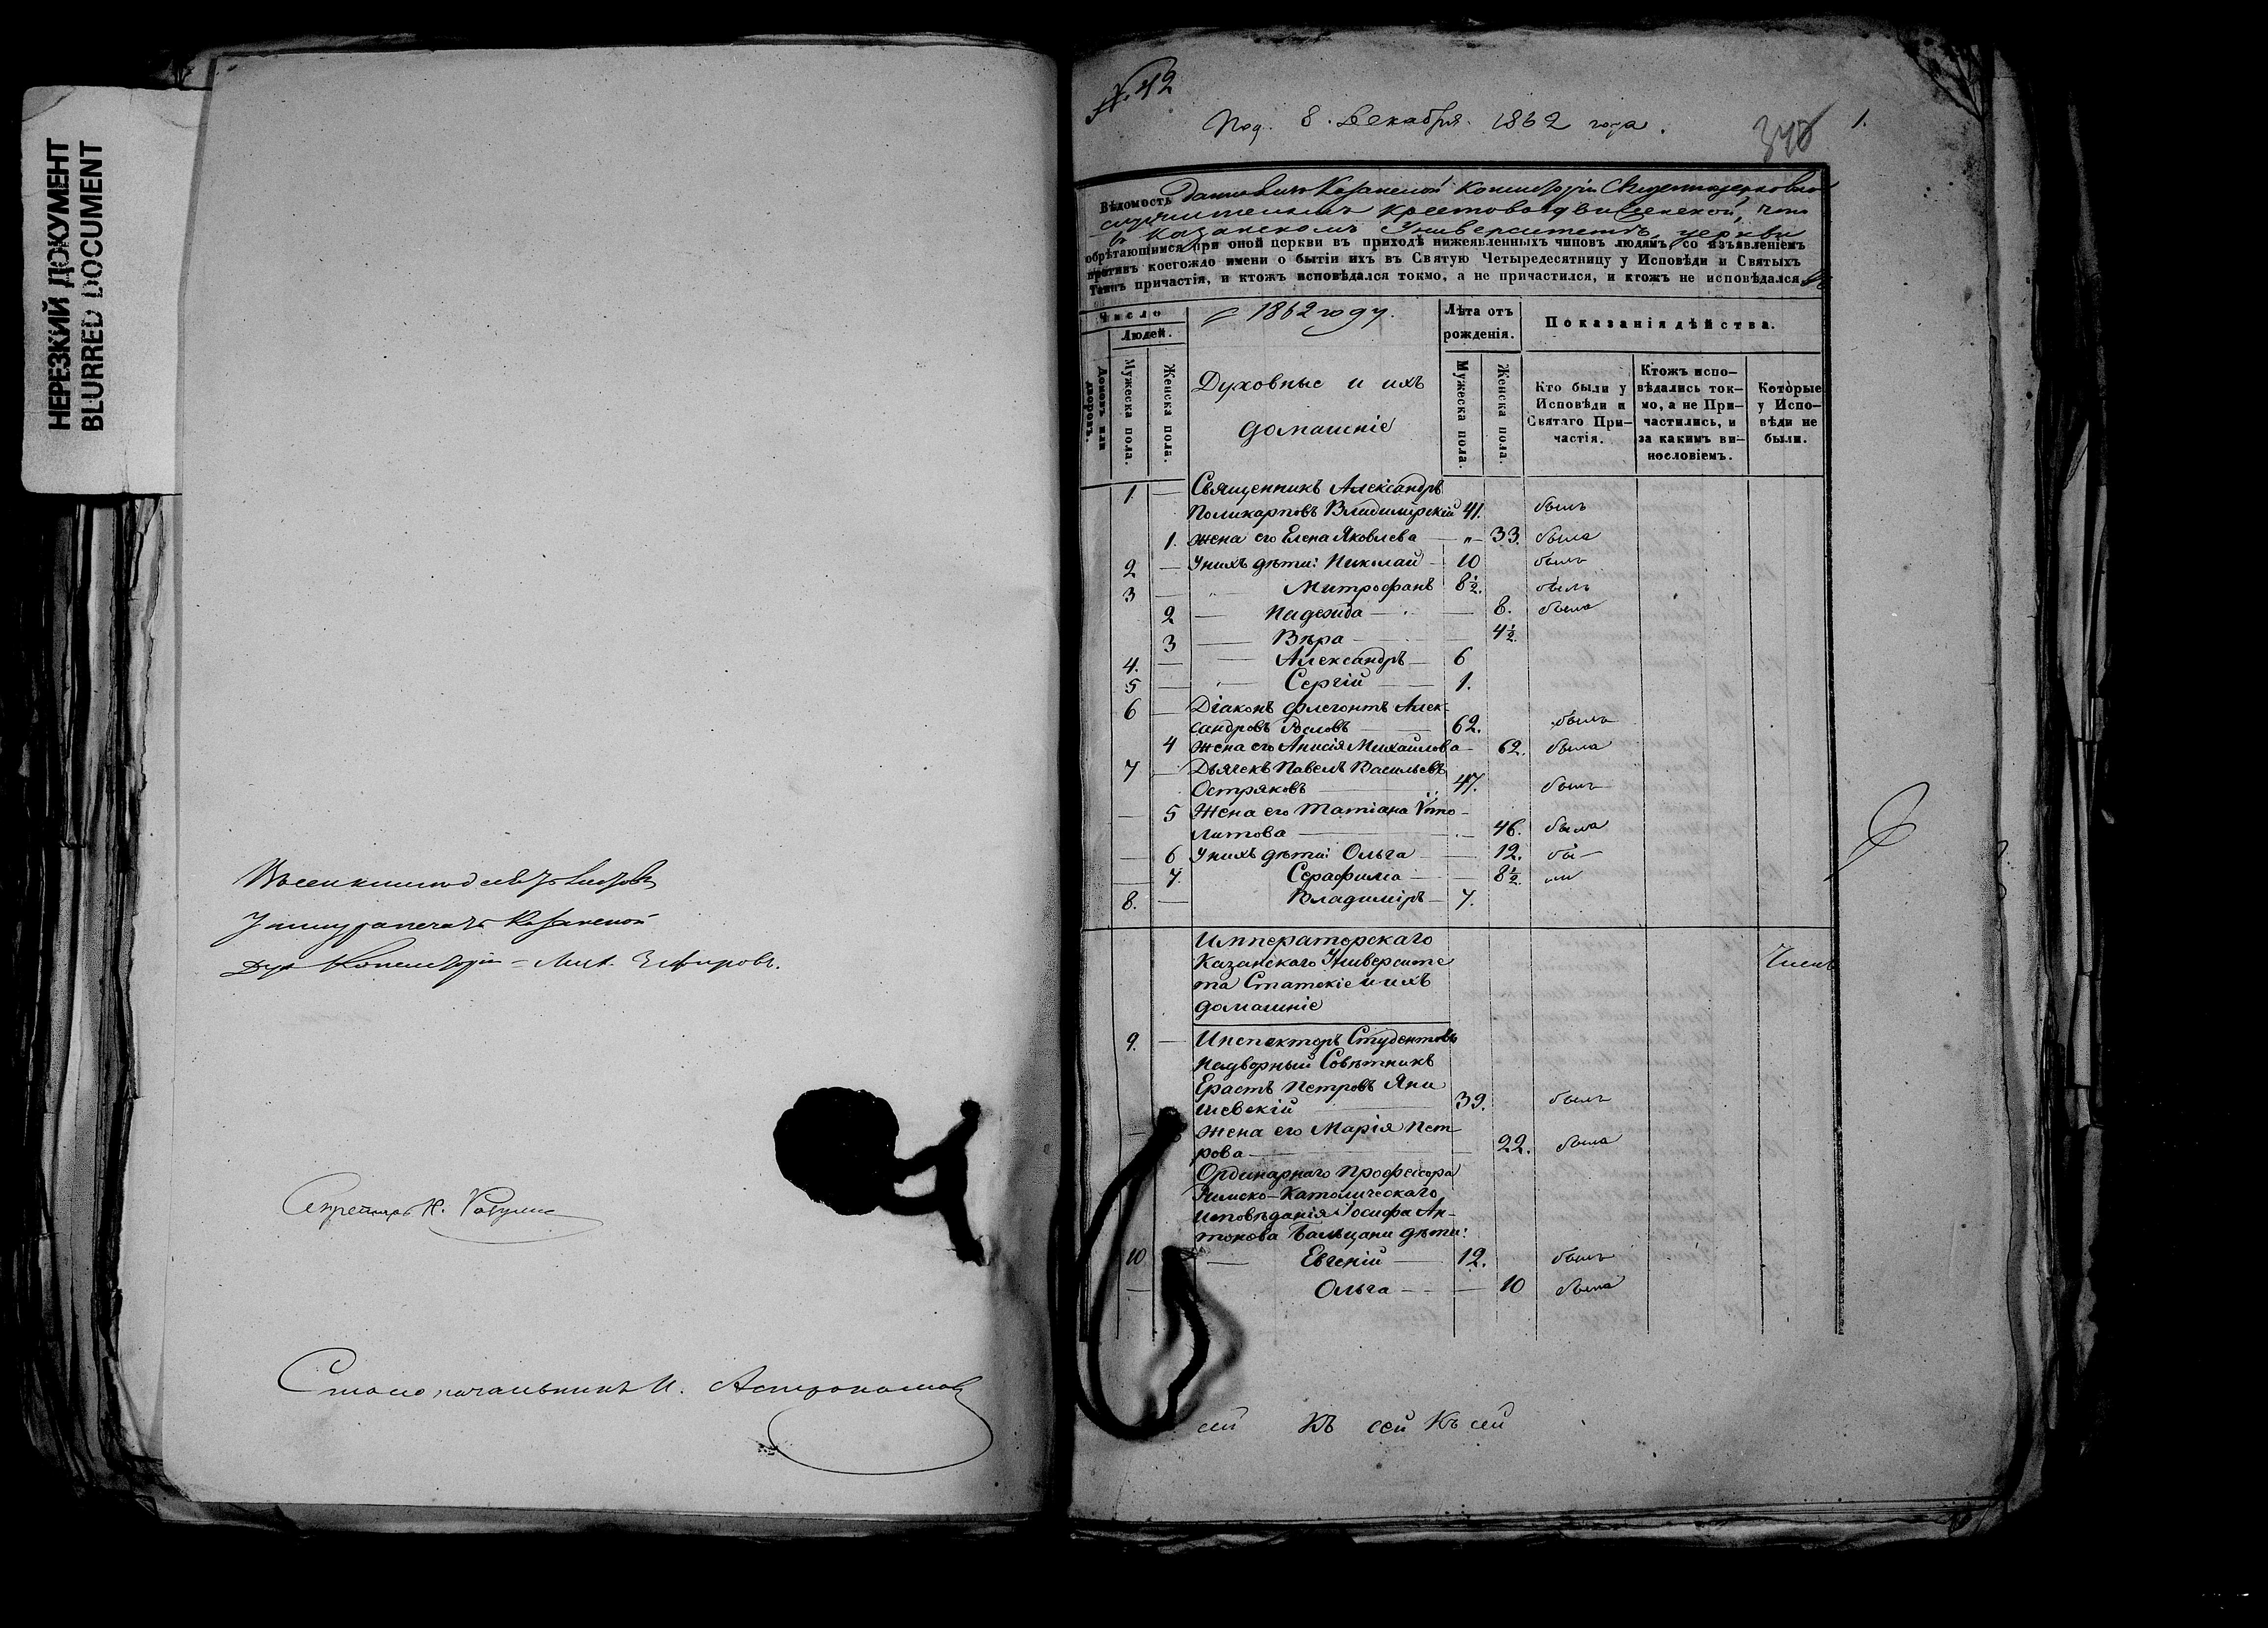 НЕРЕЗКИЙ ДОКУМЕНТ
BLURRED DOCUMENT
Въ сей книгѣ девять листовъ
У шнура печать Казанской
Дух. Консисторіи
Секретарь К.
Столоначальникъ И. Астрономовъ
№ 42
Под. 8. Декабря 1862 года.
340
1.
Вѣдомость данная изъ Казанской Консисторіи Священноцерковно
служителямъ Крестовоздвиженской, что
въ Казанскомъ Университетѣ, церкви
обрѣтающимся при оной церкви въ приходѣ нижеявленныхъ чиновъ людямъ, со изъявленіемъ
противъ коегождо имени о бытіи ихъ въ Святую Четыредесятницу у Исповѣди и Святыхъ
Таинъ причастія, и ктожъ исповѣдался токмо, а не причастился, и ктожъ не исповѣдался въ
Число
1862 году.
Лѣта отъ рожденія.
Показанія дѣйства.
Людей.
Домовъ или дворовъ.
Мужеска пола.
Женска пола.
Духовные и ихъ
домашніе
Мужеска пола.
Женска пола.
Кто были у Исповѣди и Святаго Причастія.
Ктожъ исповѣдались токмо, а не Причастились, и за какимъ винословіемъ.
Которые у Исповѣди не были.
1. — Священникъ Александръ
Поликарповъ Владимірскій 41. былъ
1. жена его Елена Яковлева — „ — 33. была
2 — У нихъ дѣти: Николай — 10 былъ
3 — Митрофанъ 8½. былъ
2 — Надежда — 8. была
3 — Вѣра — 4½.
4. — Александръ — 6
5 — Сергій — 1.
6 — Діаконъ Флегонтъ Алек-
сандровъ Рословъ — 62. былъ
4 жена его Анисія Михайлова — 62. была
7 — Дьячекъ Павелъ Васильевъ
Остряковъ — 47. былъ
— 5 Жена его Татіана Ѵппо-
литова — 46. была
— 6 У нихъ дѣти: Ольга — 12. бы-
7. Серафима — 8½. ли
8. — Владиміръ — 7.
Императорскаго
Казанскаго Университе
та Статскіе и ихъ
домашніе
9. — Инспекторъ Студентовъ
Надворный Совѣтникъ
Ерастъ Петровъ Яни
шевскій — 39. былъ
— жена его Марія Пет
рова — 22. была
Ординарнаго Профессора
Римско-Католическаго
исповѣданія Іосифа Ан-
тонова Больцани дѣти:
10 — Евгеній — 12. былъ
— Ольга — 10 была
сей Къ сей Къ сей